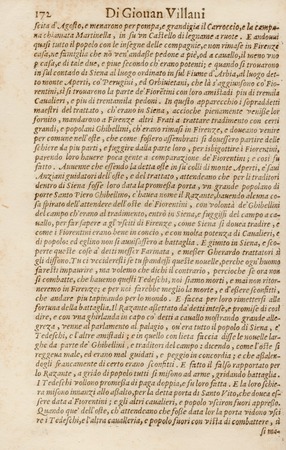 172 Di Giouan Villani
scita d'Agosto, e menarono per pompa, e grandigia il Carroccio, e la campa-
na chiamata Martinella, in su vn Castello di legname a ruote. E andouui
quasi tutto il popolo con le insegne delle compagnie, e non rimase in Firenze
casa, ne famiglia che nō v'andasse pedone a piè, od a cauallo, il meno vno
p casa, e di tale due, e piue secondo ch'erano potenti; e quando si trouarono
in sul contado di Siena al luogo ordinato in sul Fiume d'Arbia, al luogo det-
to monte Aperti, co' Perugini, e Oruietani, che là s'aggiunsono co Fio-
rentini, si si trouarono la parte de' Fiorētini con loro amistadi piu di tremila
Caualieri, e piu di trentamila pedoni. In questo apparecchio i sopradetti
maestri del trattato, ch'erano in Siena, accioche pienamente venisse lor
fornito, mandarono a Firenze altri Frati a trattare tradimento con certi
grandi, e popolani Ghibellini, ch'erano rimasi in Firenze, e doueano venire
per comune nell'oste, che come fossero assembrati si douessero partire delle
schiere da piu parti, e fuggire dalla parte loro, per isbigottire i Fiorentini,
parendo loro hauere poca gente a comparazione de' Fiorentini; e così fu
fatto. Auuenne che essendo la detta oste in su colli di monte Aperti, i saui
Anziani guidatori dell'oste, e del trattato, attendeano che per li traditori
dentro di Siena fosse loro data la promessa porta, vn grande popolano di
porte Santo Piero Ghibellino, c'hauea nome il Razante, hauendo alcuna co-
sa spirato dell'attendere dell'oste de' Fiorentini, con volontà de' Ghibellini
del campo ch'erano al tradimento, entrò in Siena, e fuggissi del campo a ca-
uallo, per far sapere a gl'vsciti di Firenze, come Siena si douea tradire, e
come i Fiorentini erano bene in concio, e con molta potenzia di Caualieri, e
di popolo ed eglino non si auuisassero a battaglia. E giunto in Siena, e sco-
perte queste cose a' detti messer Farinata, e messer Gherardo trattatori si
gli dissono. Tu ci vccideresti se tu spandessi queste nouelle, perche ogni huomo
faresti impaurire, ma volemo che dichi il contrario, percioche se ora non
si combatte, che hauemo questi Tedeschi, noi siamo morti, e mai non ritor-
neremo in Firenze, e per noi sarebbe meglio la morte, e d'essere sconfitti,
che andare piu tapinando per lo mondo. E facea per loro rimettersi alla
fortuna della battaglia. Il Razante assettato da' detti intese, e promise di così
dire, e con vna ghirlanda in capo co' detti a cauallo mostrando grande alle-
grezza, venne al parlamento al palagio, ou' era tutto il popolo di Siena, e'
Tedeschi, e l'altre amistadi; e in quello con lieta faccia disse le nouelle lar-
ghe da parte de' Ghibellini, e traditori del campo; dicendo, come l'oste si
reggeua male, ed erano mal guidati, e peggio in concordia; e che assalen-
dogli francamente di certo erano sconfitti. E fatto il falso rapportato per
lo Razante, a grido di popolo tutti si misono ad arme, gridando battaglia.
I Tedeschi vollono promessa di paga doppia, e su loro fatta. E la loro schie-
ra misono innanzi all'assalto, per la detta porta di Santo Vito, che douea es-
sere data a' Fiorentini; e gli altri caualieri, e popolo vscirono fuori appresso.
Quando que' dell'oste, ch'attendeano che fosse data lor la porta vidono vsci-
re i Tedeschi, e l'altra caualleria, e popolo fuori con vista di combattere, si